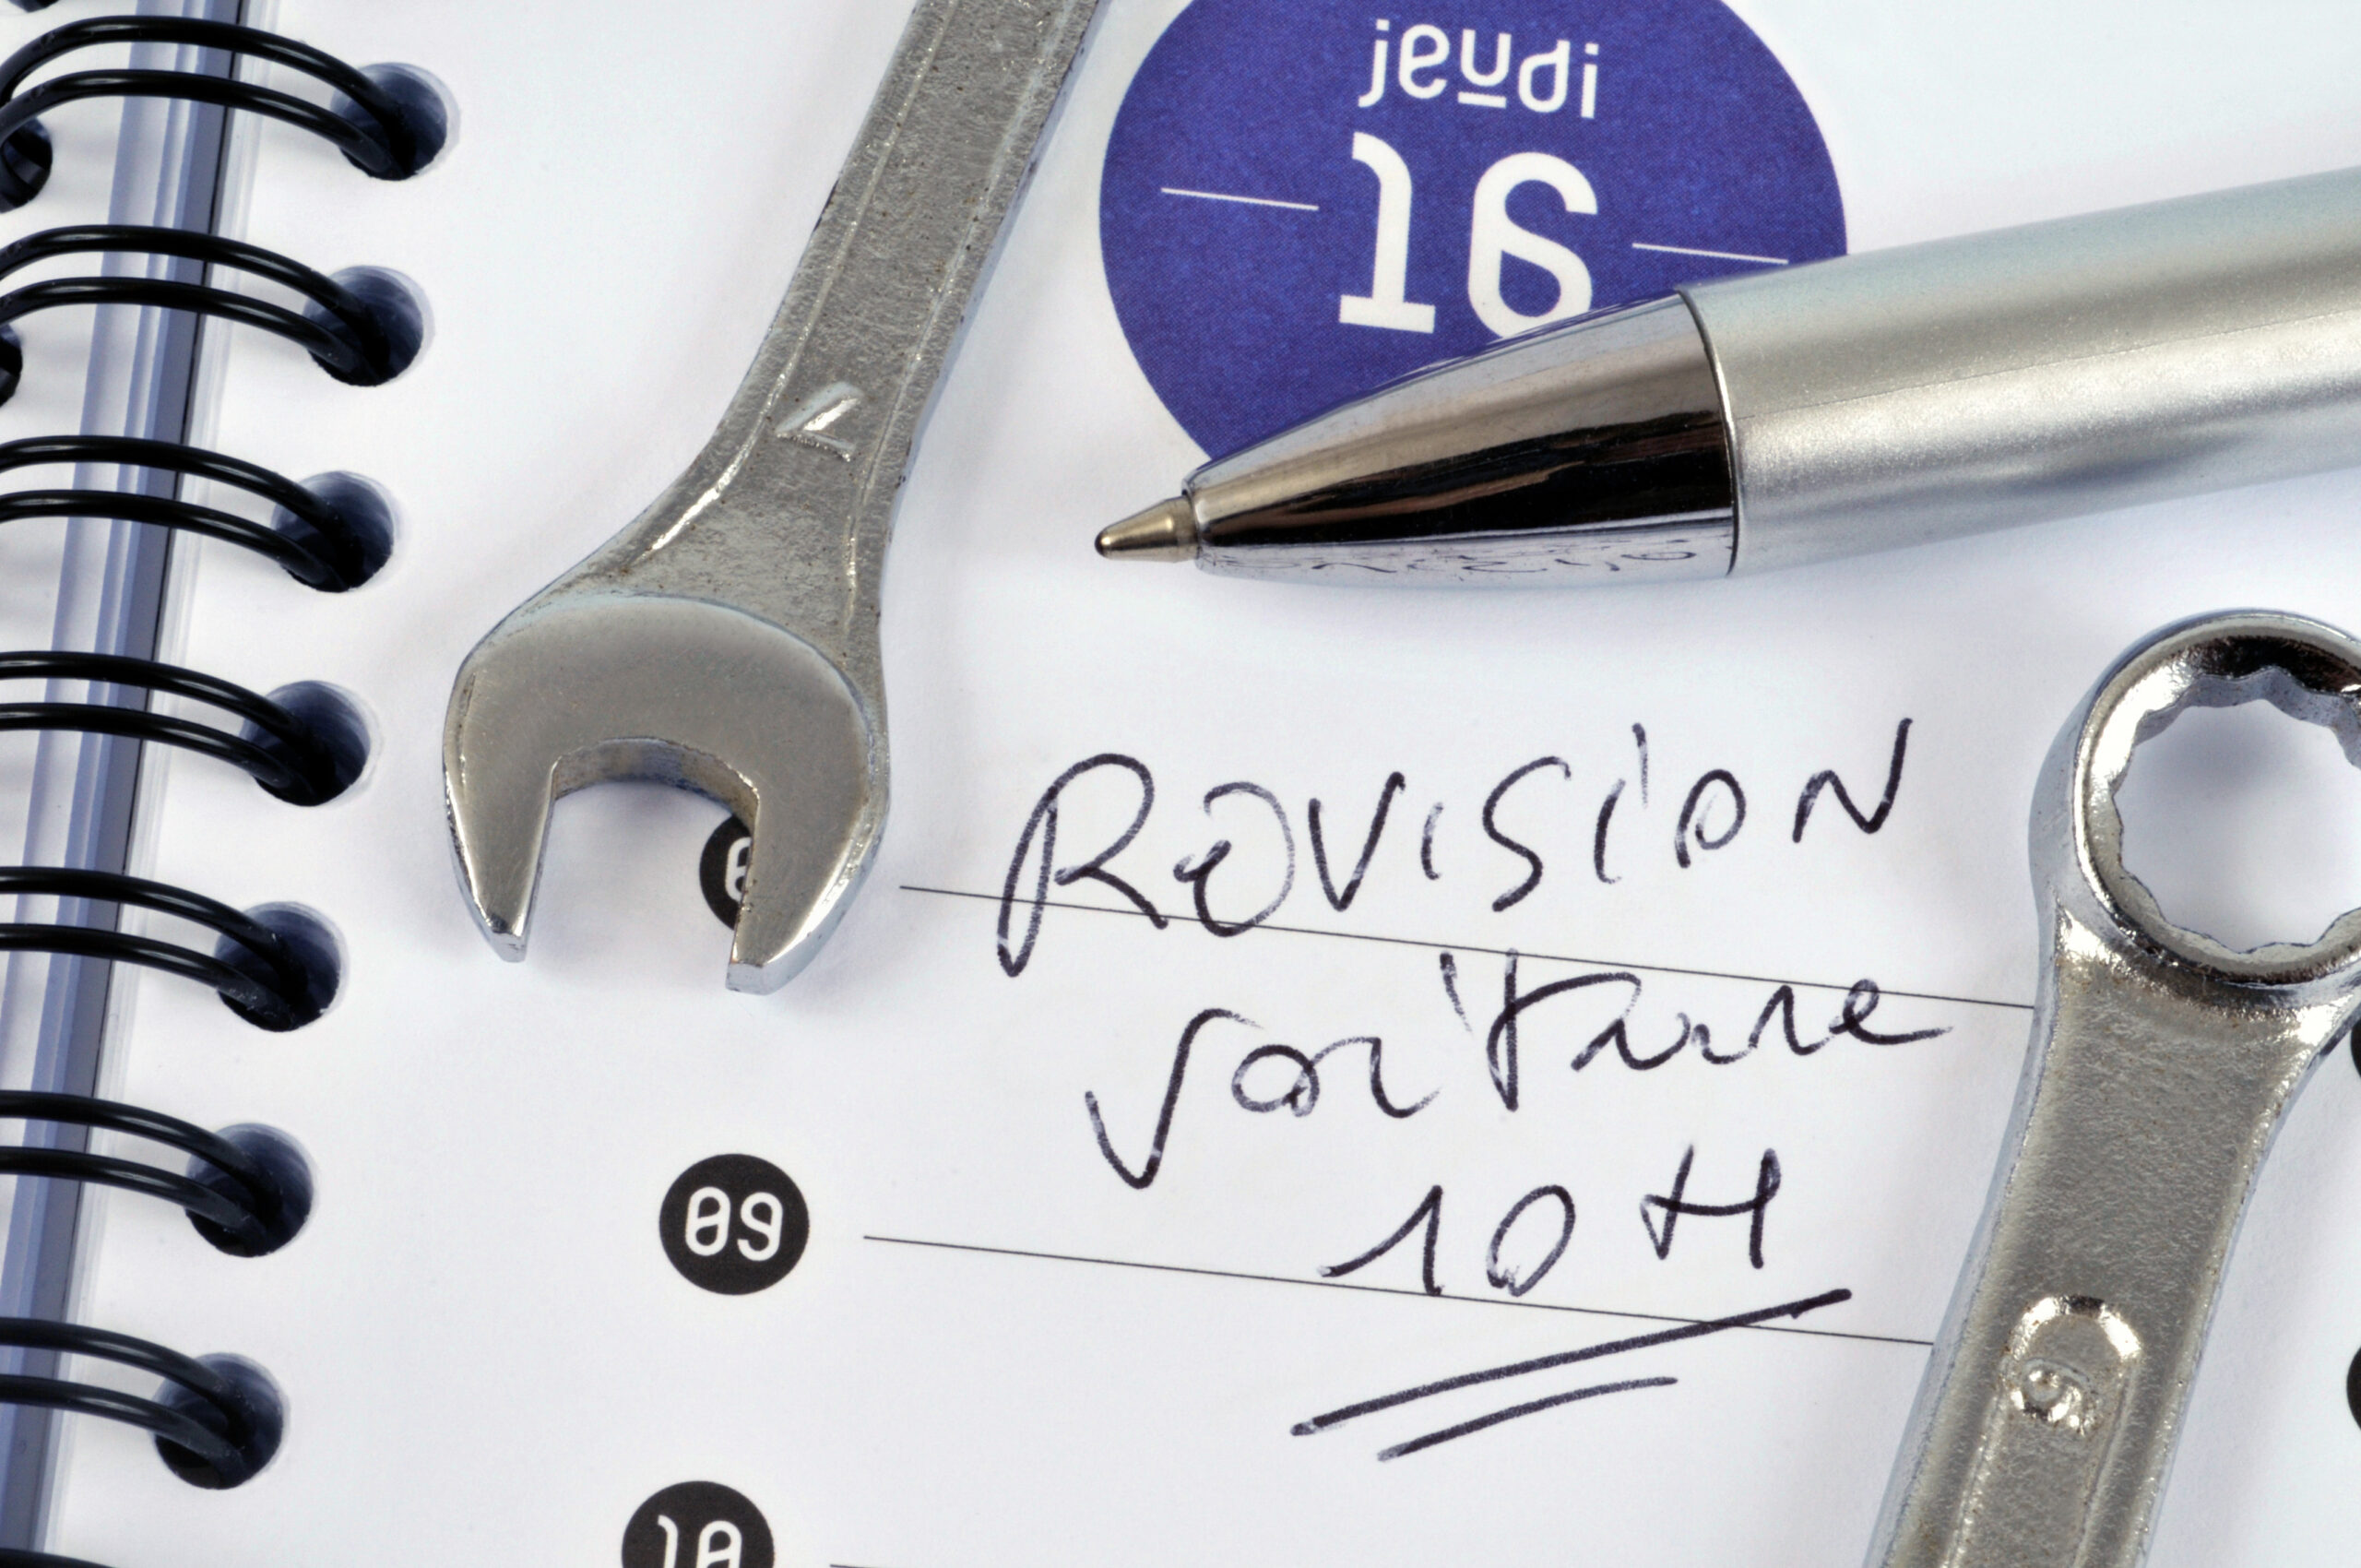 jeudi
16
7
REVISION
voiture
09
10 H
10